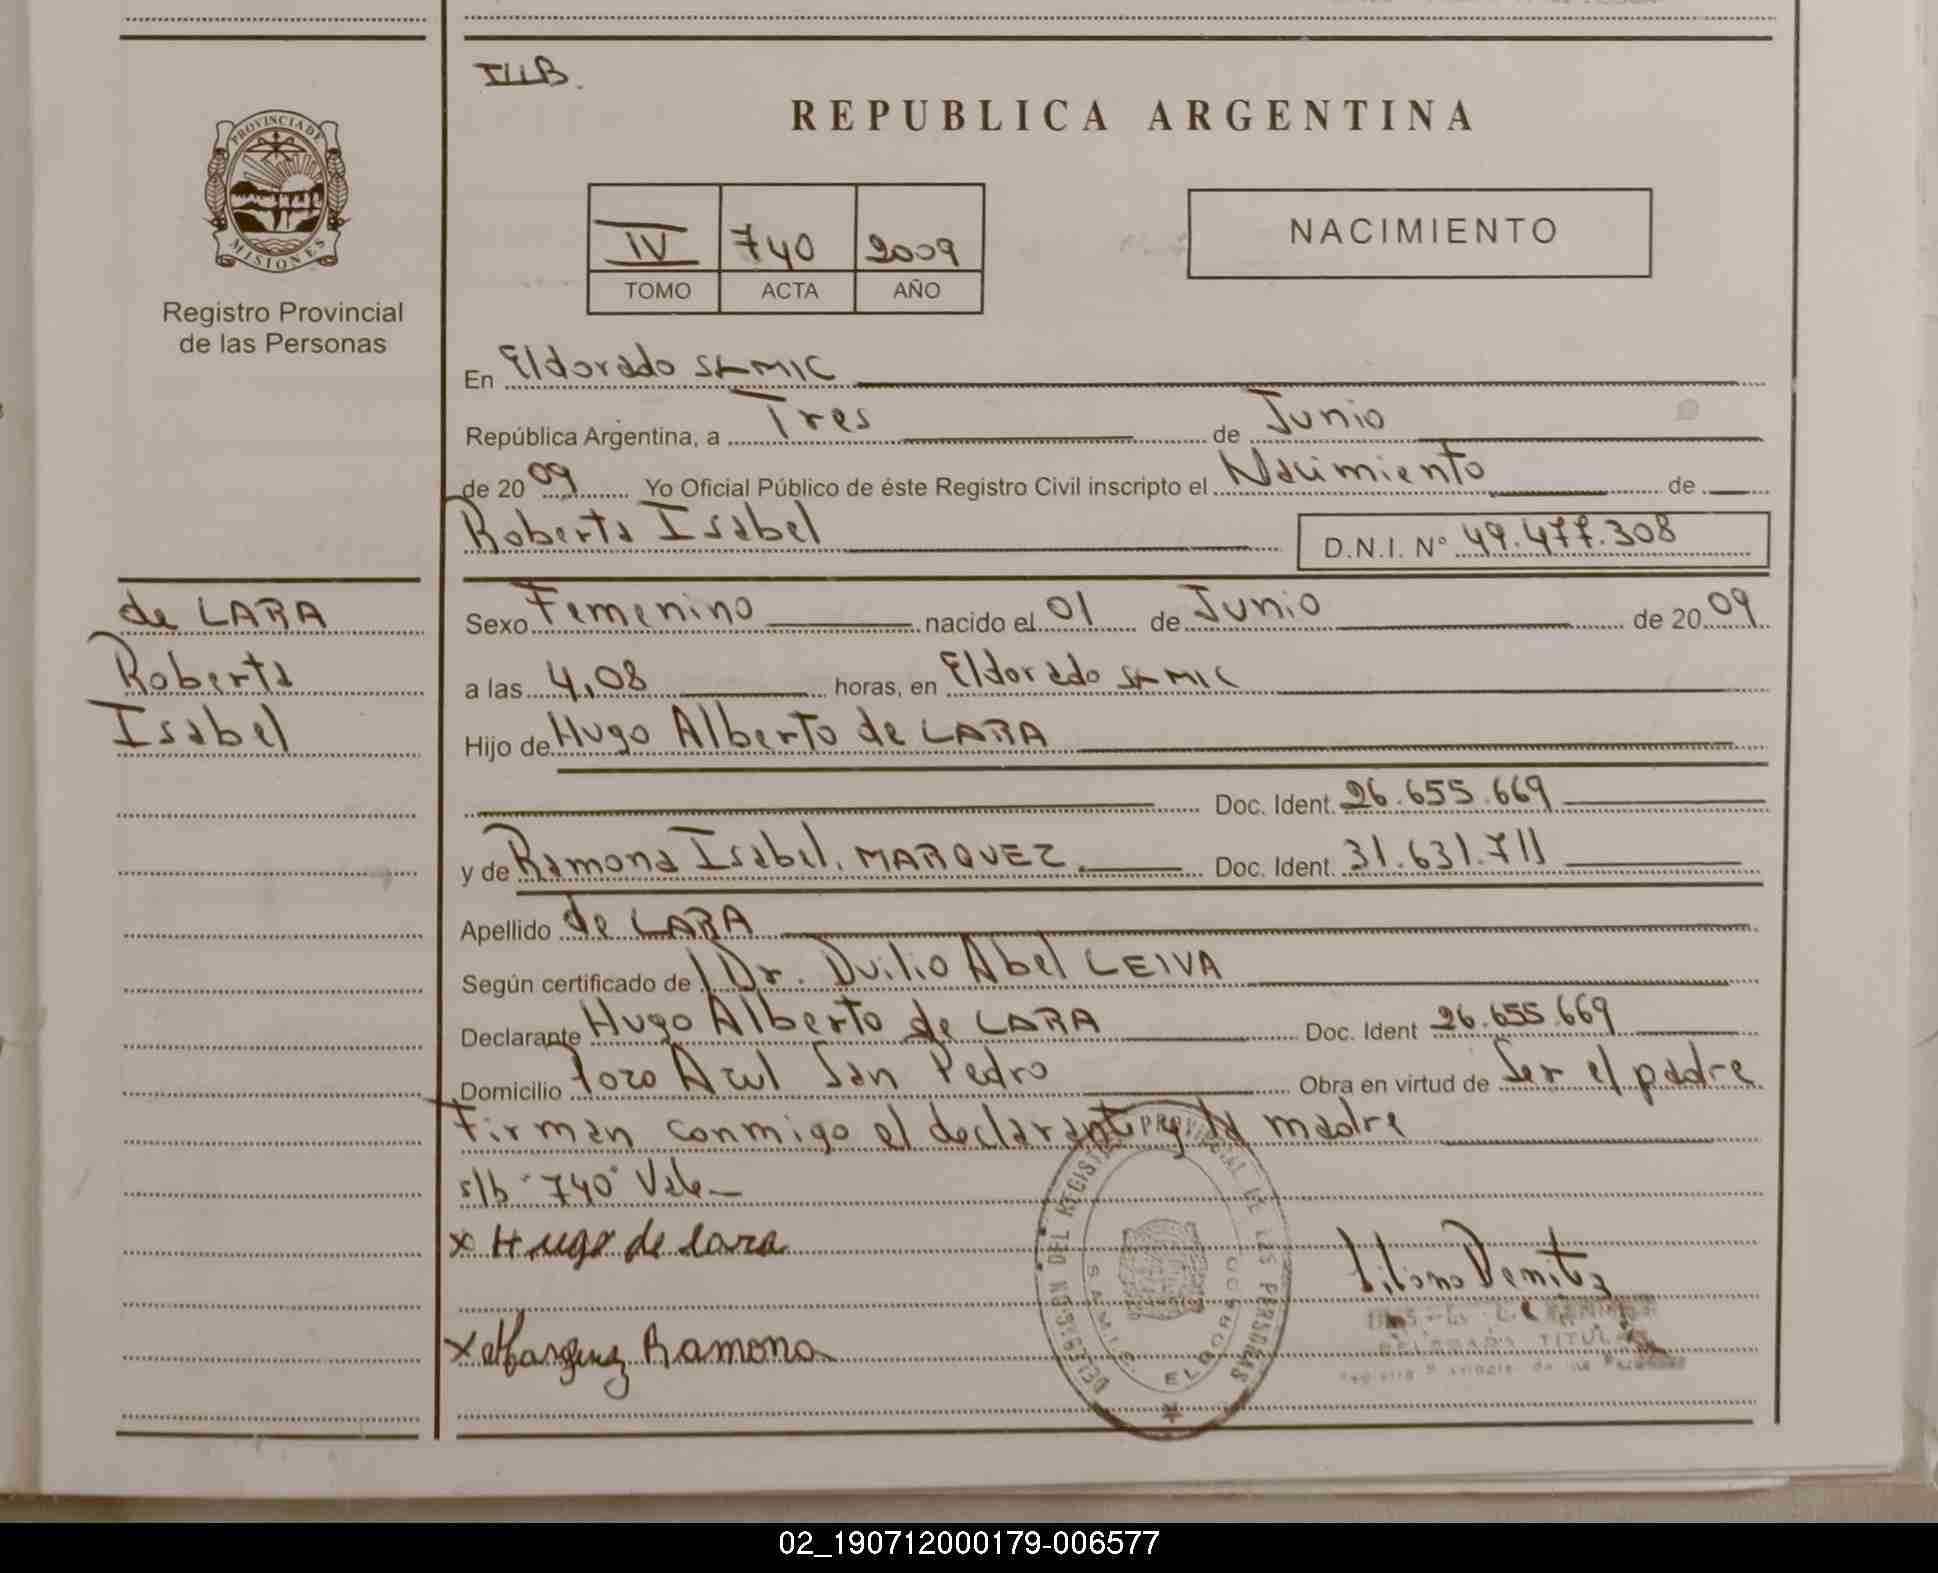 IIIB.
REPUBLICA ARGENTINA
PROVINCIA DE
MISIONES
Registro Provincial
de las Personas
IV 740 2009
TOMO ACTA AÑO
NACIMIENTO
En Eldorado SAMIC
República Argentina, a Tres de Junio
de 2009 Yo Oficial Público de éste Registro Civil inscripto el Nacimiento de
Roberta Isabel D.N.I. N° 49.477.308
de LARA
Roberta
Isabel
Sexo Femenino nacido el 01 de Junio de 2009
a las 4,08 horas, en Eldorado SAMIC
Hijo de Hugo Alberto de LARA
Doc. Ident. 26.655.669
y de Ramona Isabel MARQUEZ Doc. Ident. 31.631.711
Apellido de LARA
Según certificado de Dr. Duilio Abel LEIVA
Declarante Hugo Alberto de LARA Doc. Ident 26.655.669
Domicilio Pozo Azul San Pedro Obra en virtud de Ser el padre
Firman conmigo el declarante y la madre
s/b "740" Vale
x Hugo de lara
x Marquez Ramona
DEL REGISTRO PROVINCIAL DE LAS PERSONAS
SAMIC ELDORADO
TITULAR
02_190712000179-006577